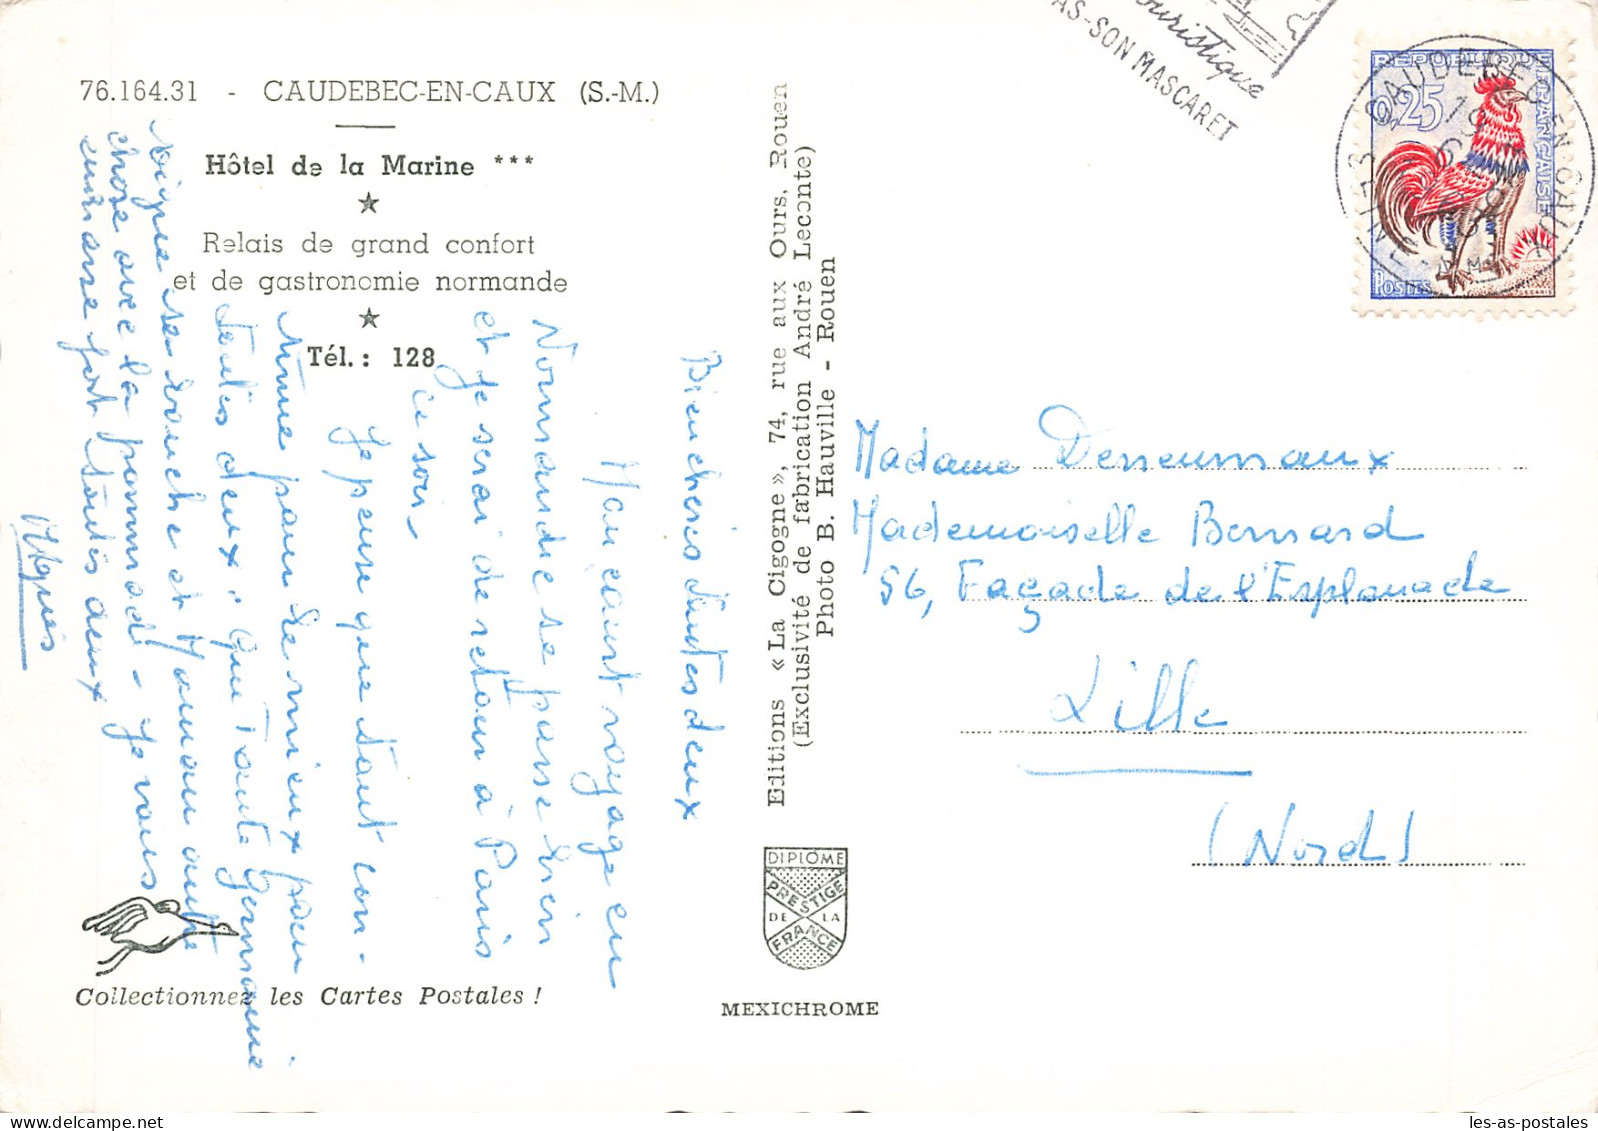 76.164.31 - CAUDEBEC-EN-CAUX (S.-M.)
Hôtel de la Marine ***
Relais de grand confort
et de gastronomie normande
Tél. : 128
Bien chères toutes deux
Mon court voyage en
Normandie se passe bien
et je serai de retour à Paris
ce soir
Je pense que tout con-
tinue pour le mieux pour
toutes deux, que Tante Germaine
soigne sa bouche et Maman autre
chose avec la pommade - Je vous
embrasse fort toutes deux
Agnès
Collectionnez les Cartes Postales !
Editions « La Cigogne », 74, rue aux Ours, Rouen
(Exclusivité de fabrication André Leconte)
Photo B. Hauville - Rouen
DIPLOME
PRESTIGE
DE LA
FRANCE
MEXICHROME
touristique
AS-SON MASCARET
REPUBLIQUE FRANÇAISE
0,25
POSTES
CAUDEBEC EN CAUX
SEINE
Madame Desseumaux
Mademoiselle Bernard
56, Façade de l'Esplanade
Lille
(Nord)
les-as-postales